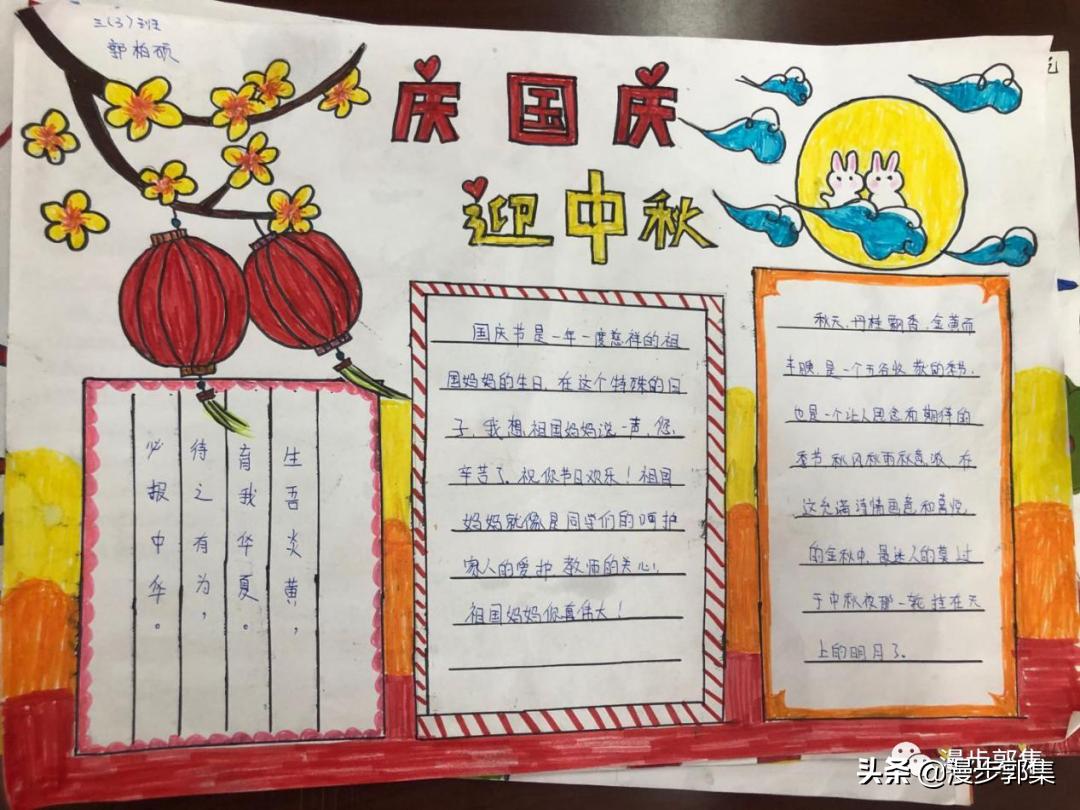 三(3)班
郭柏硕
庆国庆
迎中秋
生吾炎黄，
育我华夏。
待之有为，
必报中华。
国庆节是一年一度慈祥的祖
国妈妈的生日，在这个特殊的日
子，我想祖国妈妈说一声，您
辛苦了，祝你节日欢乐！祖国
妈妈就像是同学们的呵护
家人的爱护，教师的关心，
祖国妈妈你真伟大！
秋天，丹桂飘香，金黄而
丰腴，是一个五谷收 的季节，
也是一个让人思念和期待的
季节秋风秋雨秋意浓，在
这充满诗情画意和喜悦，
的金秋中，最迷人的莫过
于中秋夜那一轮挂在天
上的明月了。
漫步郭集
头条 @漫步郭集